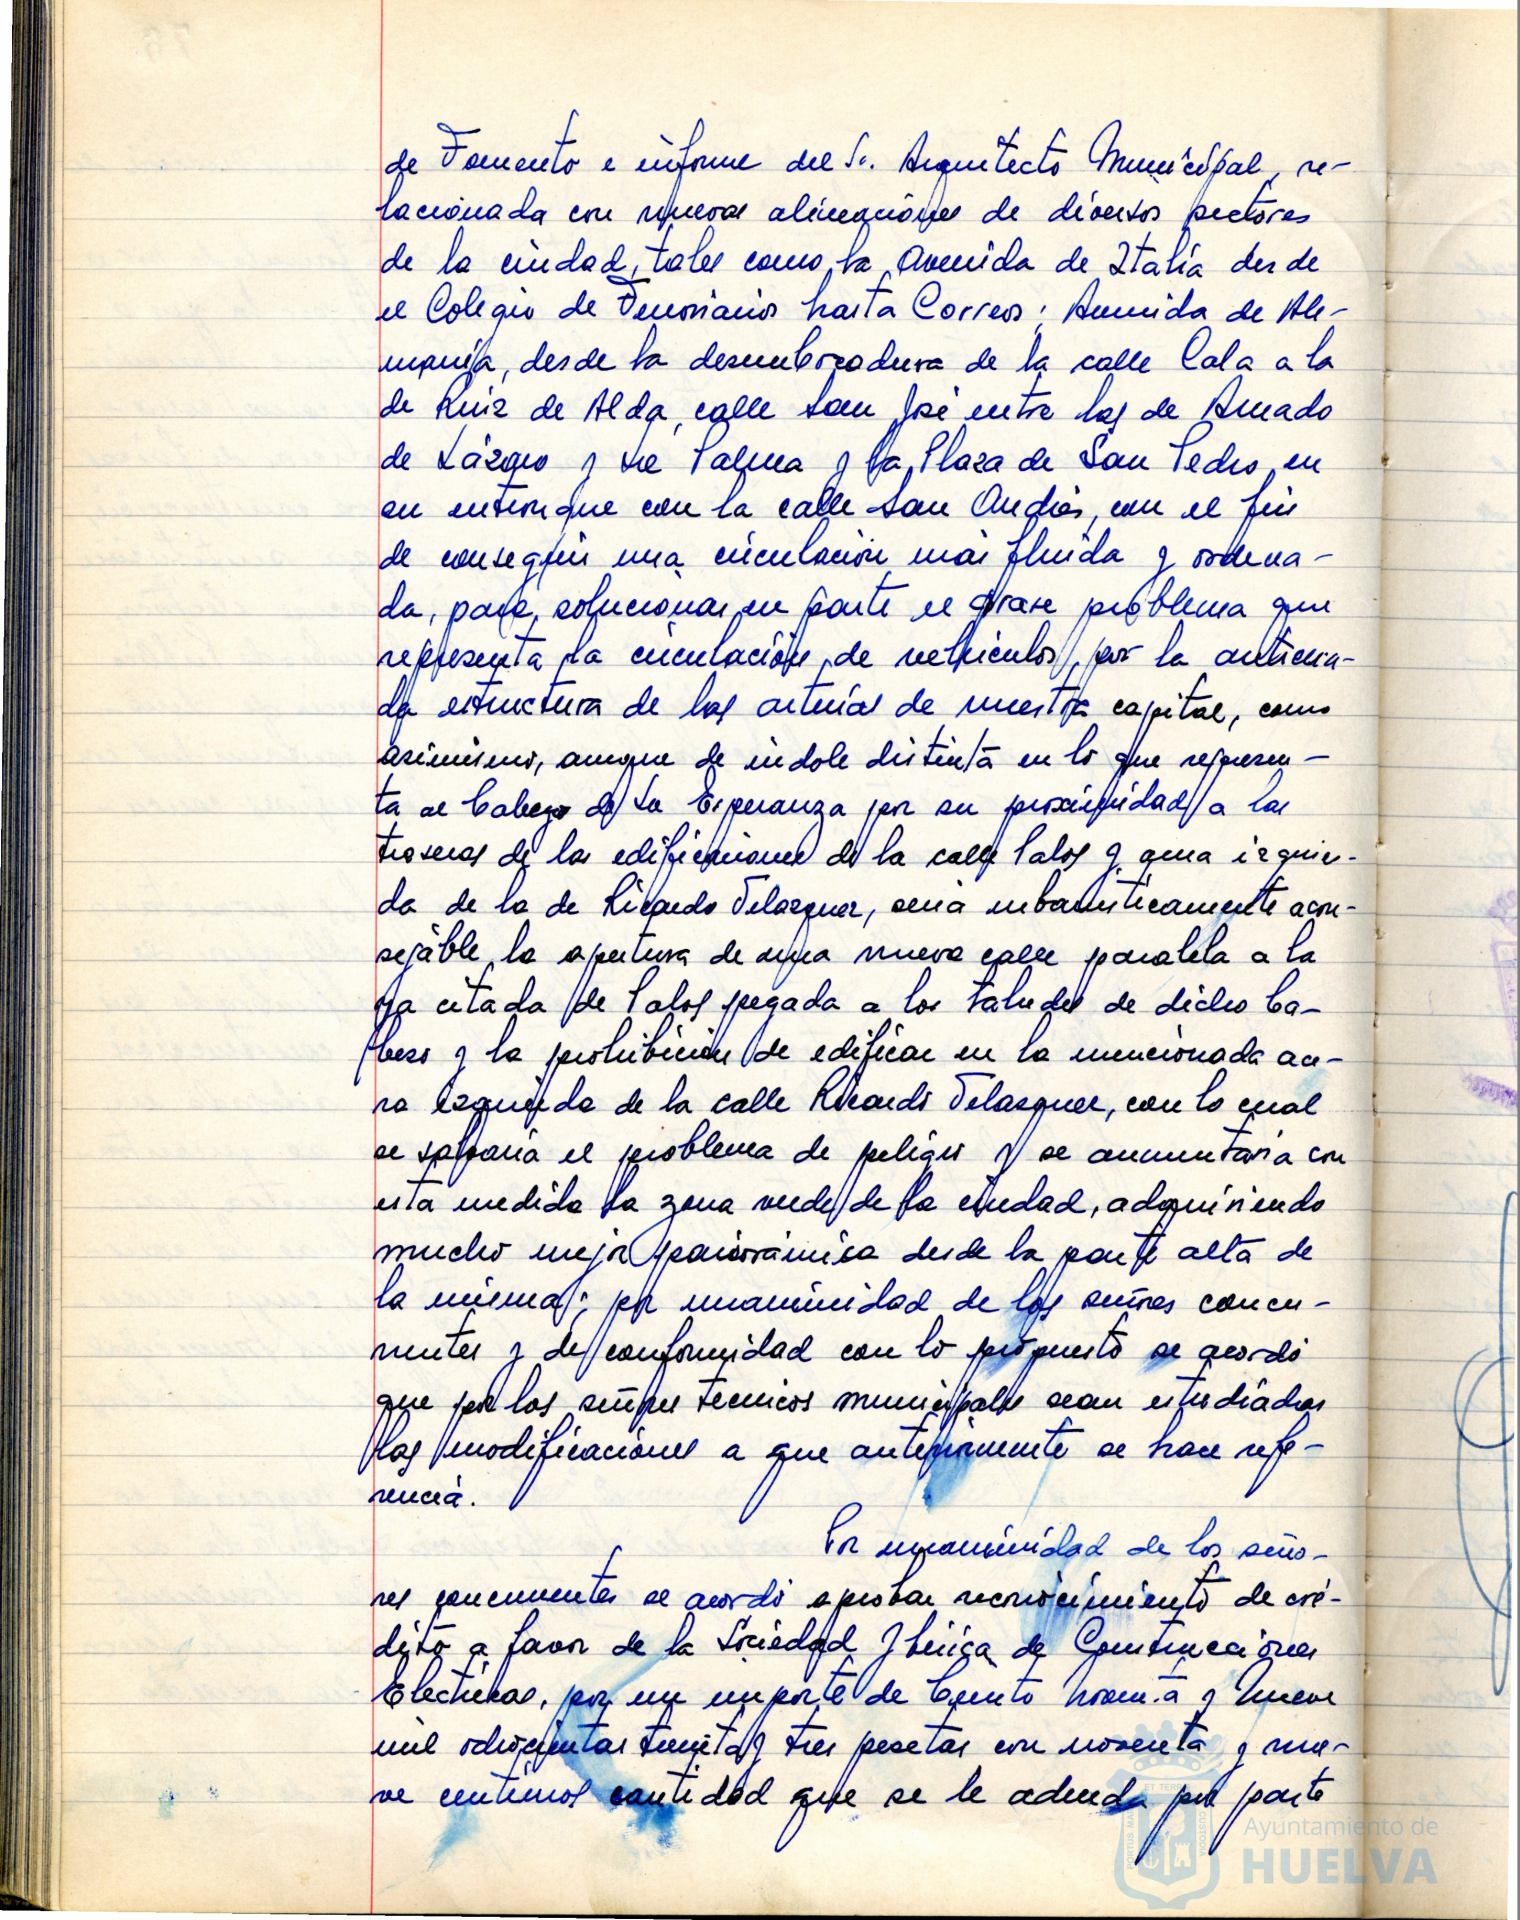 de Fomento e informe del Sr. Arquitecto Municipal, re-
lacionada con nuevas alineaciones de diversos sectores
de la ciudad, tales como la Avenida de Italia desde
el Colegio de Ferroviarios hasta Correos; Avenida de Ale-
mania, desde la desembocadura de la calle Cala a la
de Ruiz de Alda, calle San José entre las de Amado
de Lázaro y La Palma y la Plaza de San Pedro en
su entronque con la calle San Andrés, con el fin
de conseguir una circulación más fluida y ordena-
da, para solucionar en parte el grave problema que
representa la circulación de vehículos, por la anticua-
da estructura de las arterias de nuestra capital, como
asimismo, aunque de indole distinta en lo que represen-
ta al Cabezo de La Esperanza por su proximidad a las
traseras de las edificaciones de la calle Palos y acera izquier-
da de la de Ricardo Velazquez, seria urbanisticamente acon-
sejable la apertura de una nueva calle paralela a la
ya citada de Palos pegada a los taludes de dicho Ca-
bezo y la prohibición de edificar en la mencionada ace-
ra izquierda de la calle Ricardo Velazquez, con lo cual
se salvaria el problema de peligro y se aumentaria con
esta medida la zona verde de la ciudad, adquiriendo
mucho mejor panorámica desde la parte alta de
la misma; por unanimidad de los señores concu-
rrentes y de conformidad con lo propuesto se acordó
que por los señores tecnicos municipales sean estudiadas
las modificaciones a que anteriormente se hace refe-
rencia.
Por unanimidad de los seño-
res concurrentes se acordó aprobar reconocimiento de cré-
dito a favor de la Sociedad Iberica de Construcciones
Electricas, por un importe de Ciento noventa y nueve
mil ochocientas treinta y tres pesetas con noventa y nue-
ve centimos cantidad que se le adeuda por parte
Ayuntamiento de
HUELVA